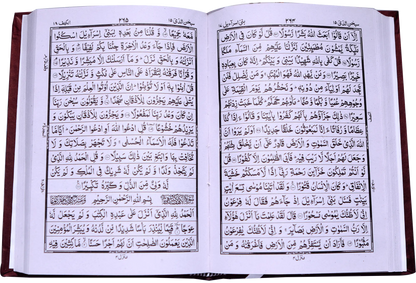 اِلَّاۤ اَنْ قَالُوْۤا اَبَعَثَ اللّٰهُ بَشَرًا رَّسُوْلًا قُلْ لَّوْ كَانَ فِی الْاَرْضِ
مَلٰٓىِٕكَةٌ یَّمْشُوْنَ مُطْمَىِٕنِّیْنَ لَنَزَّلْنَا عَلَیْهِمْ مِّنَ السَّمَآءِ مَلَكًا
رَّسُوْلًا قُلْ كَفٰی بِاللّٰهِ شَهِیْدًۢا بَیْنِیْ وَبَیْنَكُمْ اِنَّهٗ كَانَ بِعِبَادِهٖ
خَبِیْرًۢا بَصِیْرًا وَمَنْ یَّهْدِ اللّٰهُ فَهُوَ الْمُهْتَدِ وَمَنْ یُّضْلِلْ فَلَنْ
تَجِدَ لَهُمْ اَوْلِیَآءَ مِنْ دُوْنِهٖ وَنَحْشُرُهُمْ یَوْمَ الْقِیٰمَةِ عَلٰی
وُجُوْهِهِمْ عُمْیًا وَّبُكْمًا وَّصُمًّا مَاْوٰىهُمْ جَهَنَّمُ كُلَّمَا خَبَتْ زِدْنٰهُمْ
سَعِیْرًا ذٰلِكَ جَزَآؤُهُمْ بِاَنَّهُمْ كَفَرُوْا بِاٰیٰتِنَا وَقَالُوْۤا ءَاِذَا كُنَّا
عِظَامًا وَّرُفَاتًا ءَاِنَّا لَمَبْعُوْثُوْنَ خَلْقًا جَدِیْدًا اَوَلَمْ یَرَوْا اَنَّ
اللّٰهَ الَّذِیْ خَلَقَ السَّمٰوٰتِ وَالْاَرْضَ قَادِرٌ عَلٰۤی اَنْ یَّخْلُقَ مِثْلَهُمْ
وَجَعَلَ لَهُمْ اَجَلًا لَّا رَیْبَ فِیْهِ فَاَبَی الظّٰلِمُوْنَ اِلَّا كُفُوْرًا قُلْ
لَّوْ اَنْتُمْ تَمْلِكُوْنَ خَزَآىِٕنَ رَحْمَةِ رَبِّیْۤ اِذًا لَّاَمْسَكْتُمْ خَشْیَةَ
الْاِنْفَاقِ وَكَانَ الْاِنْسَانُ قَتُوْرًا وَلَقَدْ اٰتَیْنَا مُوْسٰی تِسْعَ اٰیٰتٍۭ
بَیِّنٰتٍ فَسْـَٔلْ بَنِیْۤ اِسْرَآءِیْلَ اِذْ جَآءَهُمْ فَقَالَ لَهٗ فِرْعَوْنُ
اِنِّیْ لَاَظُنُّكَ یٰمُوْسٰی مَسْحُوْرًا قَالَ لَقَدْ عَلِمْتَ مَاۤ اَنْزَلَ هٰۤؤُلَآءِ
اِلَّا رَبُّ السَّمٰوٰتِ وَالْاَرْضِ بَصَآىِٕرَ وَاِنِّیْ لَاَظُنُّكَ یٰفِرْعَوْنُ
مَثْبُوْرًا فَاَرَادَ اَنْ یَّسْتَفِزَّهُمْ مِّنَ الْاَرْضِ فَاَغْرَقْنٰهُ وَمَنْ
٢٩٥
مَّعَهٗ جَمِیْعًا وَّقُلْنَا مِنْۢ بَعْدِهٖ لِبَنِیْۤ اِسْرَآءِیْلَ اسْكُنُوا
الْاَرْضَ فَاِذَا جَآءَ وَعْدُ الْاٰخِرَةِ جِئْنَا بِكُمْ لَفِیْفًا وَبِالْحَقِّ
اَنْزَلْنٰهُ وَبِالْحَقِّ نَزَلَ وَمَاۤ اَرْسَلْنٰكَ اِلَّا مُبَشِّرًا وَّنَذِیْرًا
وَقُرْاٰنًا فَرَقْنٰهُ لِتَقْرَاَهٗ عَلَی النَّاسِ عَلٰی مُكْثٍ وَّنَزَّلْنٰهُ تَنْزِیْلًا
قُلْ اٰمِنُوْا بِهٖۤ اَوْ لَا تُؤْمِنُوْا اِنَّ الَّذِیْنَ اُوْتُوا الْعِلْمَ مِنْ قَبْلِهٖۤ اِذَا
یُتْلٰی عَلَیْهِمْ یَخِرُّوْنَ لِلْاَذْقَانِ سُجَّدًا وَّیَقُوْلُوْنَ سُبْحٰنَ رَبِّنَاۤ
اِنْ كَانَ وَعْدُ رَبِّنَا لَمَفْعُوْلًا وَیَخِرُّوْنَ لِلْاَذْقَانِ یَبْكُوْنَ وَ
یَزِیْدُهُمْ خُشُوْعًا قُلِ ادْعُوا اللّٰهَ اَوِ ادْعُوا الرَّحْمٰنَ اَیًّا مَّا
تَدْعُوْا فَلَهُ الْاَسْمَآءُ الْحُسْنٰی وَلَا تَجْهَرْ بِصَلَاتِكَ وَلَا
تُخَافِتْ بِهَا وَابْتَغِ بَیْنَ ذٰلِكَ سَبِیْلًا وَقُلِ الْحَمْدُ لِلّٰهِ الَّذِیْ
لَمْ یَتَّخِذْ وَلَدًا وَّلَمْ یَكُنْ لَّهٗ شَرِیْكٌ فِی الْمُلْكِ وَلَمْ یَكُنْ
لَّهٗ وَلِیٌّ مِّنَ الذُّلِّ وَكَبِّرْهُ تَكْبِیْرًا
بِسْمِ اللّٰهِ الرَّحْمٰنِ الرَّحِیْمِ
اَلْحَمْدُ لِلّٰهِ الَّذِیْۤ اَنْزَلَ عَلٰی عَبْدِهِ الْكِتٰبَ وَلَمْ یَجْعَلْ لَّهٗ
عِوَجًا قَیِّمًا لِّیُنْذِرَ بَاْسًا شَدِیْدًا مِّنْ لَّدُنْهُ وَیُبَشِّرَ الْمُؤْمِنِیْنَ
الَّذِیْنَ یَعْمَلُوْنَ الصّٰلِحٰتِ اَنَّ لَهُمْ اَجْرًا حَسَنًا مَّاكِثِیْنَ فِیْهِ